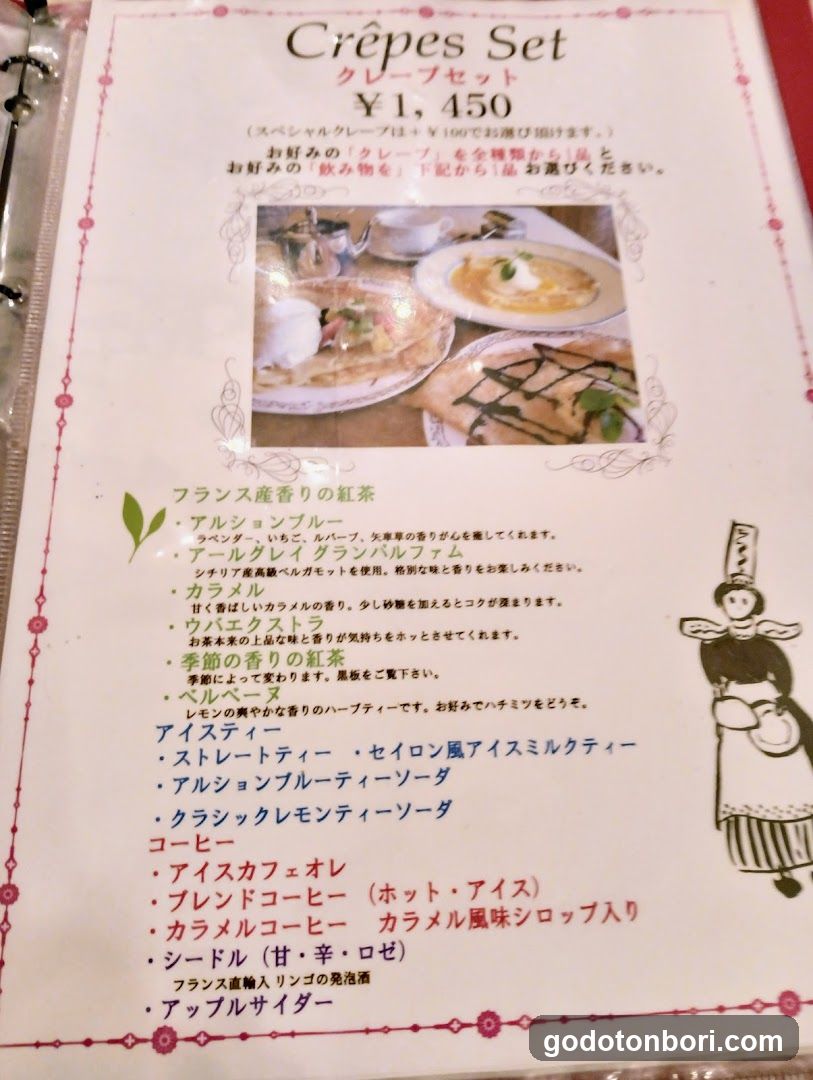 Crêpes Set
クレープセット
￥1,450
（スペシャルクレープは＋￥100でお選び頂けます。）
お好みの「クレープ」を全種類から1品 と
お好みの「飲み物を」下記から1品 お選びください。
フランス産香りの紅茶
・アルションブルー
ラベンダ－、いちご、ルバーブ、矢車草の香りが心を癒してくれます。
・アールグレイ グランパルファム
シチリア産高級ベルガモットを使用。格別な味と香りをお楽しみください。
・カラメル
甘く香ばしいカラメルの香り。少し砂糖を加えるとコクが深まります。
・ウバエクストラ
お茶本来の上品な味と香りが気持ちをホッとさせてくれます。
・季節の香りの紅茶
季節によって変わります。黒板をご覧下さい。
・ベルベーヌ
レモンの爽やかな香りのハーブティーです。お好みでハチミツをどうぞ。
アイスティー
・ストレートティー ・セイロン風アイスミルクティー
・アルションブルーティーソーダ
・クラシックレモンティーソーダ
コーヒー
・アイスカフェオレ
・ブレンドコーヒー （ホット・アイス）
・カラメルコーヒー カラメル風味シロップ入り
・シードル（甘・辛・ロゼ）
フランス直輸入 リンゴの発泡酒
・アップルサイダー
godotonbori.com